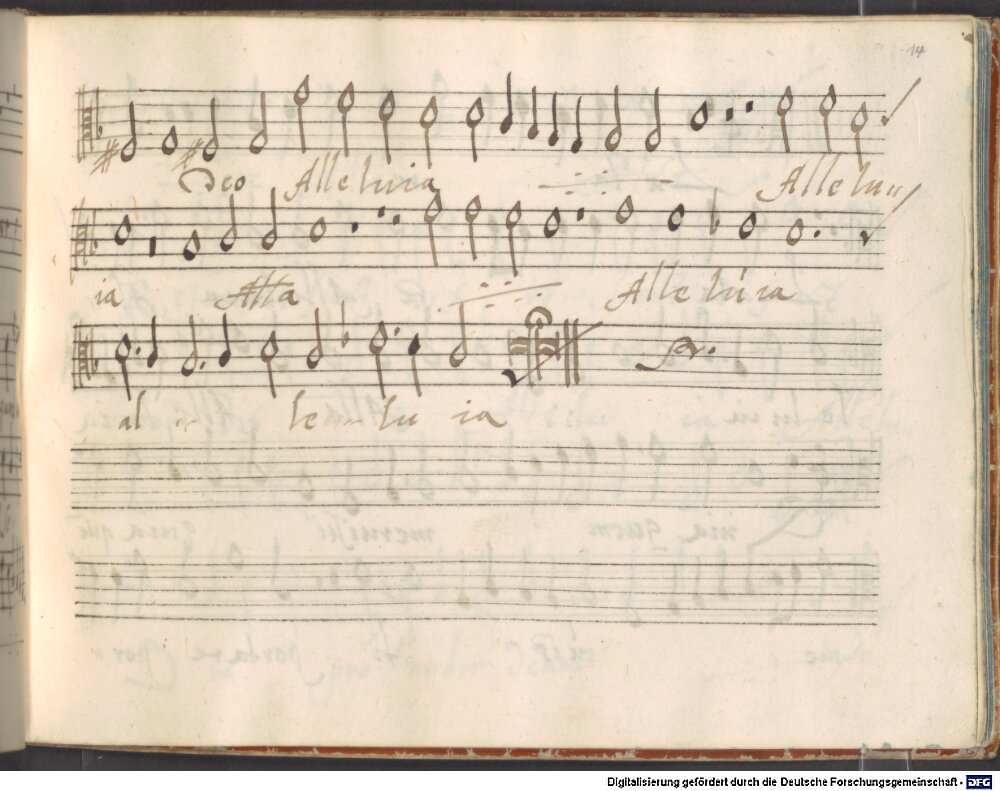 14
Deo Alleluia Allelu
ia Alla Alleluia
al - le - lu ia
Digitalisierung gefördert durch die Deutsche Forschungsgemeinschaft - DFG